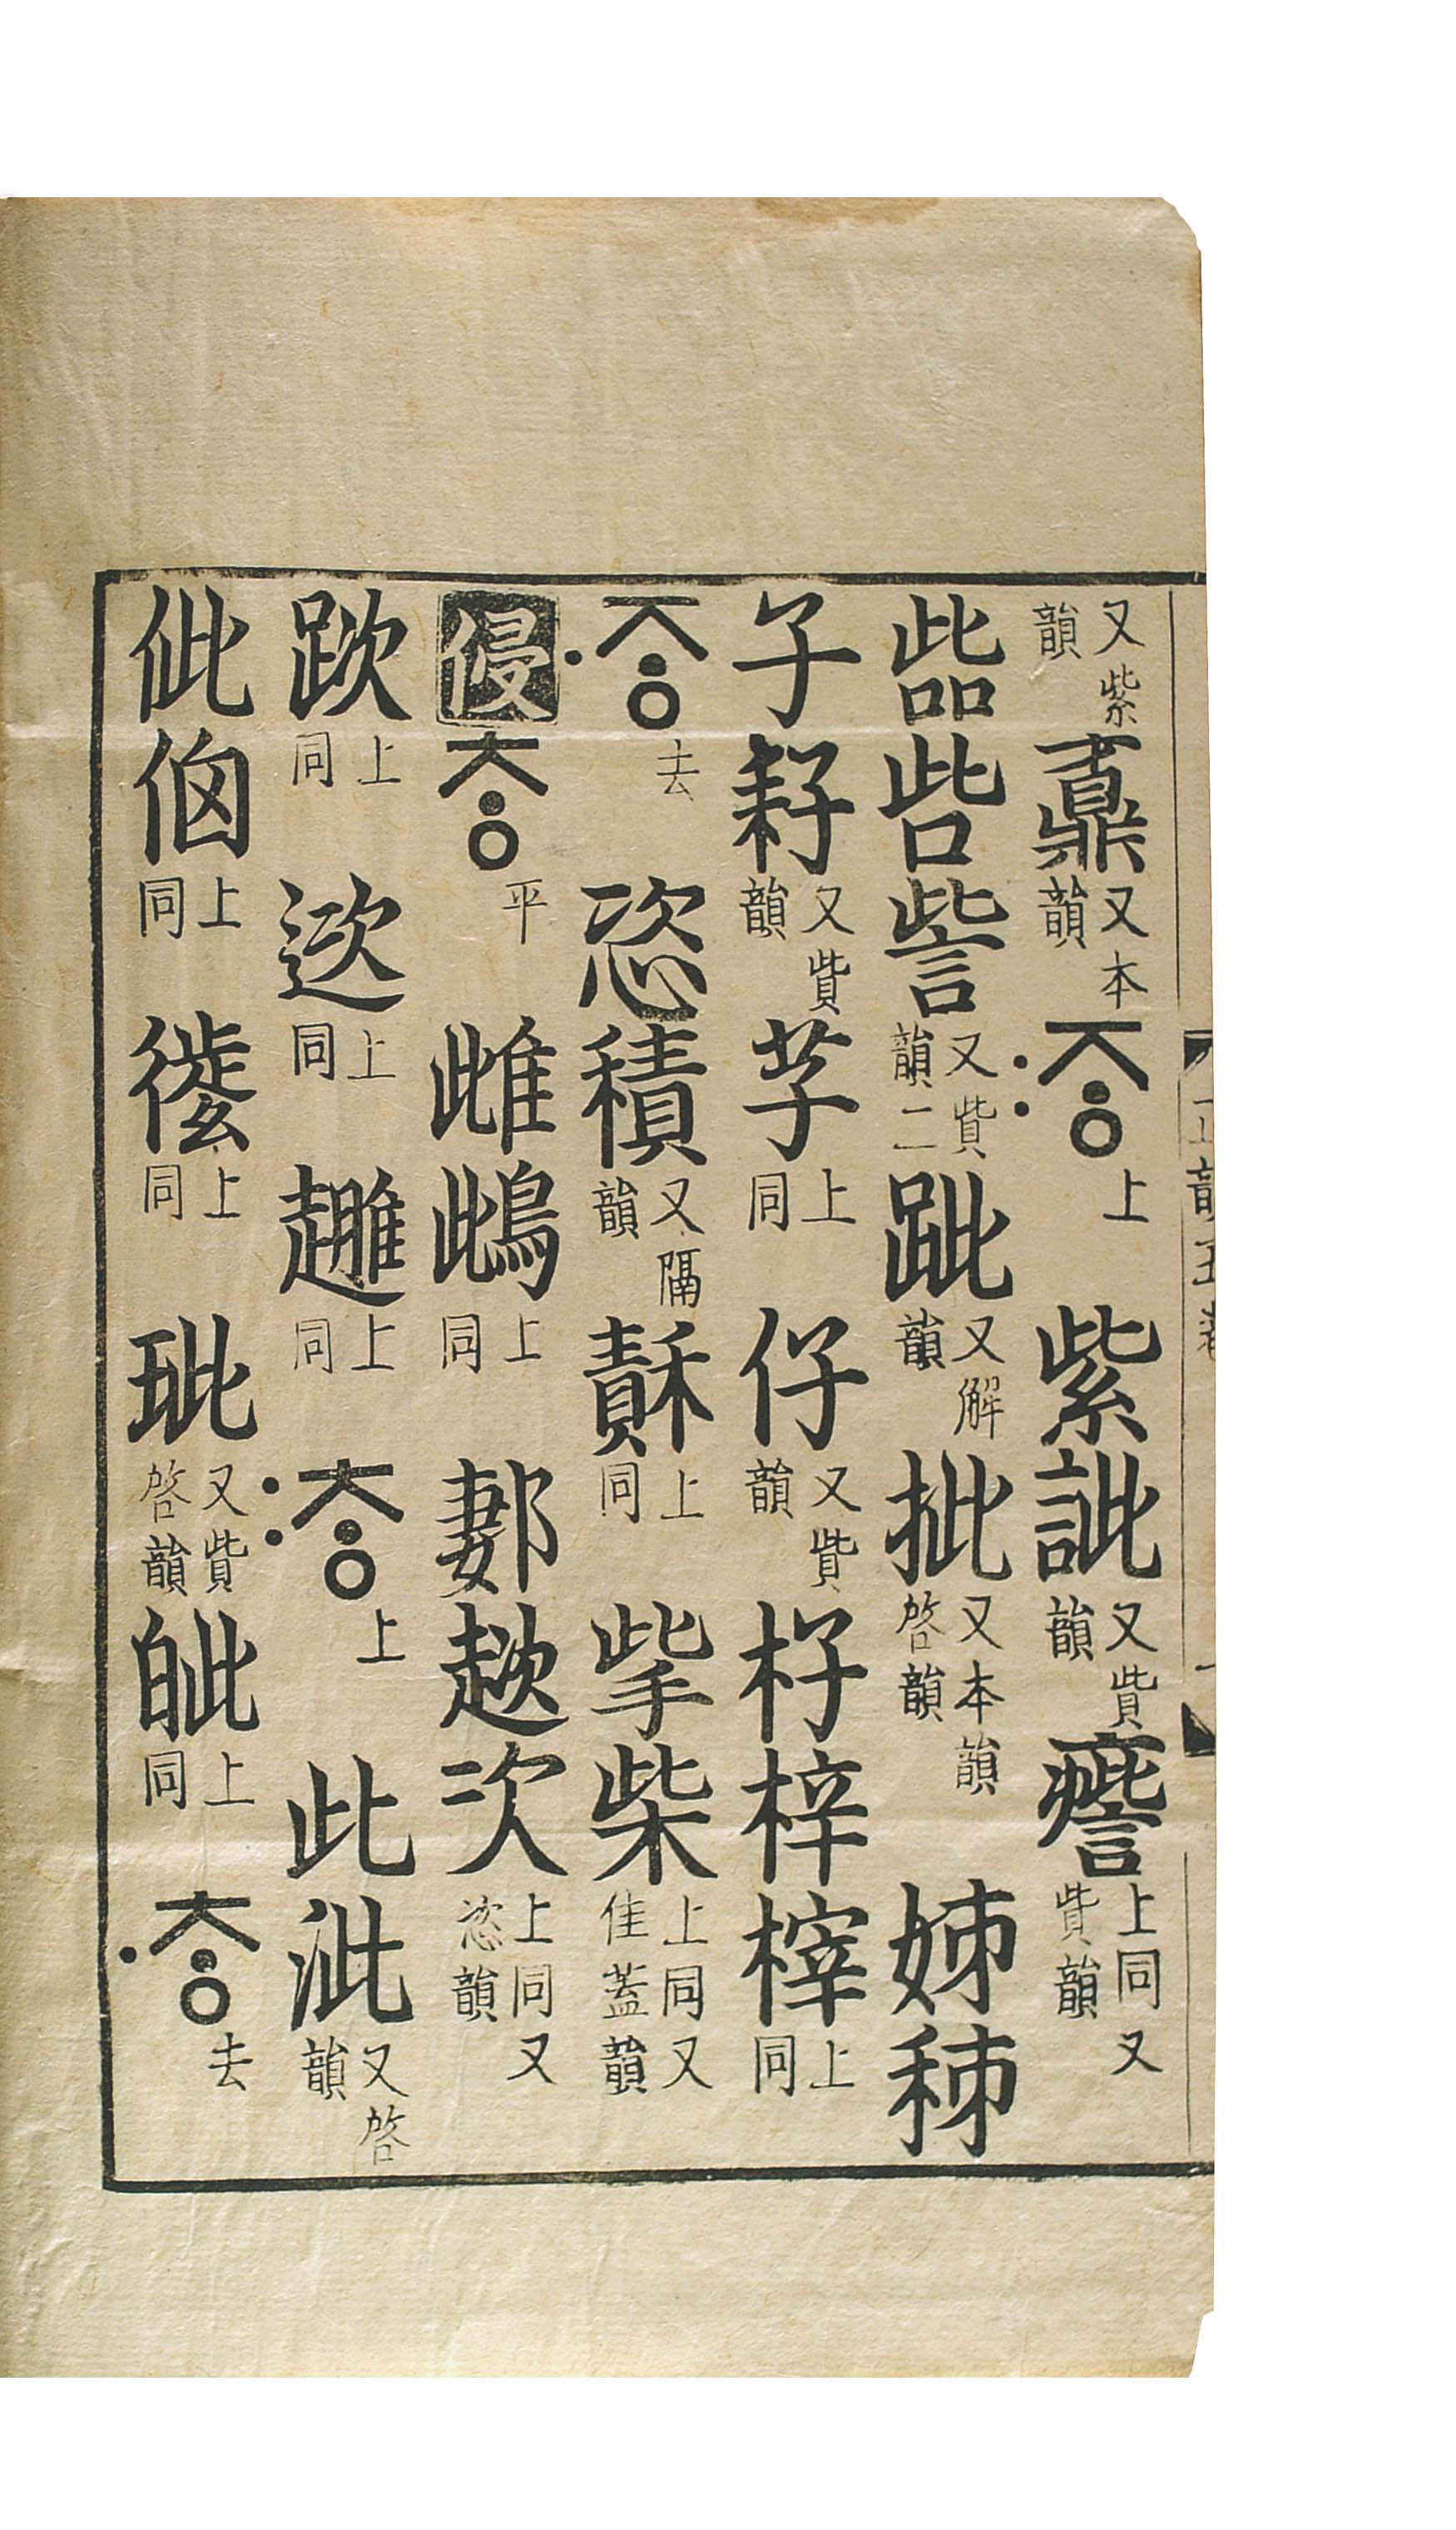 又紫韻又本韻ᄌᆞᆼ〯上紫訿又貲韻上同又貲韻
呰訾又貲韻二跐又解韻㧗又本韻啓韻姊秭
子耔又貲韻芓上同仔又貲韻杍梓榟上同
ᄌᆞᆼ〮去恣積又隔韻上同柴上同又佳蓋韻
侵ᄎᆞᆼ平雌䳄上同郪趑次上同又恣韻
䟣上同上同上同ᄎᆞᆼ〯上此泚又啓韻
佌上同上同玼又貲啓韻皉上同ᄎᆞᆼ〮去